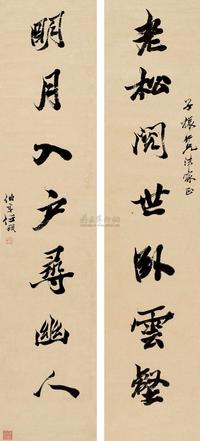 老松閱世臥雲壑
子振仁兄法家正
明月入戶尋幽人
伯年任頤